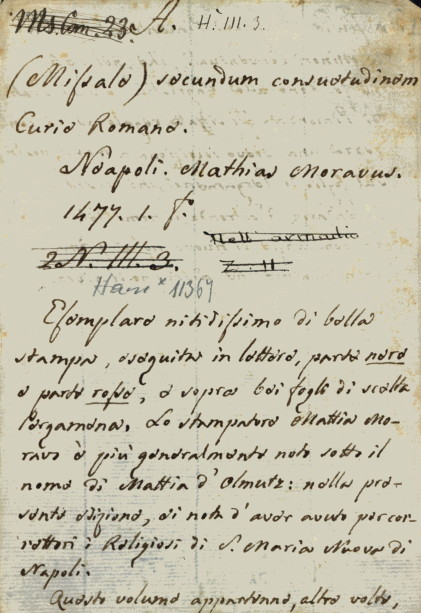 Ms Com. 23. A. H. III. 3.
(Missale) secundum consuetudinem
Curie Romane.
Neapoli. Mathias Moravus.
1477. 1. f.º
Nell' armadio
2 N. III 3. Z. H
Hain * 11364
Esemplare nitidissimo di bella
stampa, eseguita in lettere, parte nere
e parte rosse, e sopra bei fogli di scelta
Pergamena. Lo stampatore Mattia Mo-
ravo è più generalmente noto sotto il
nome di Mattia d'Olmutz: nella pre-
sente edizione, si nota d'aver avuto per cor-
rettori i Religiosi di S. Maria Nuova di
Napoli.
Questo volume appartenne, altre volte,